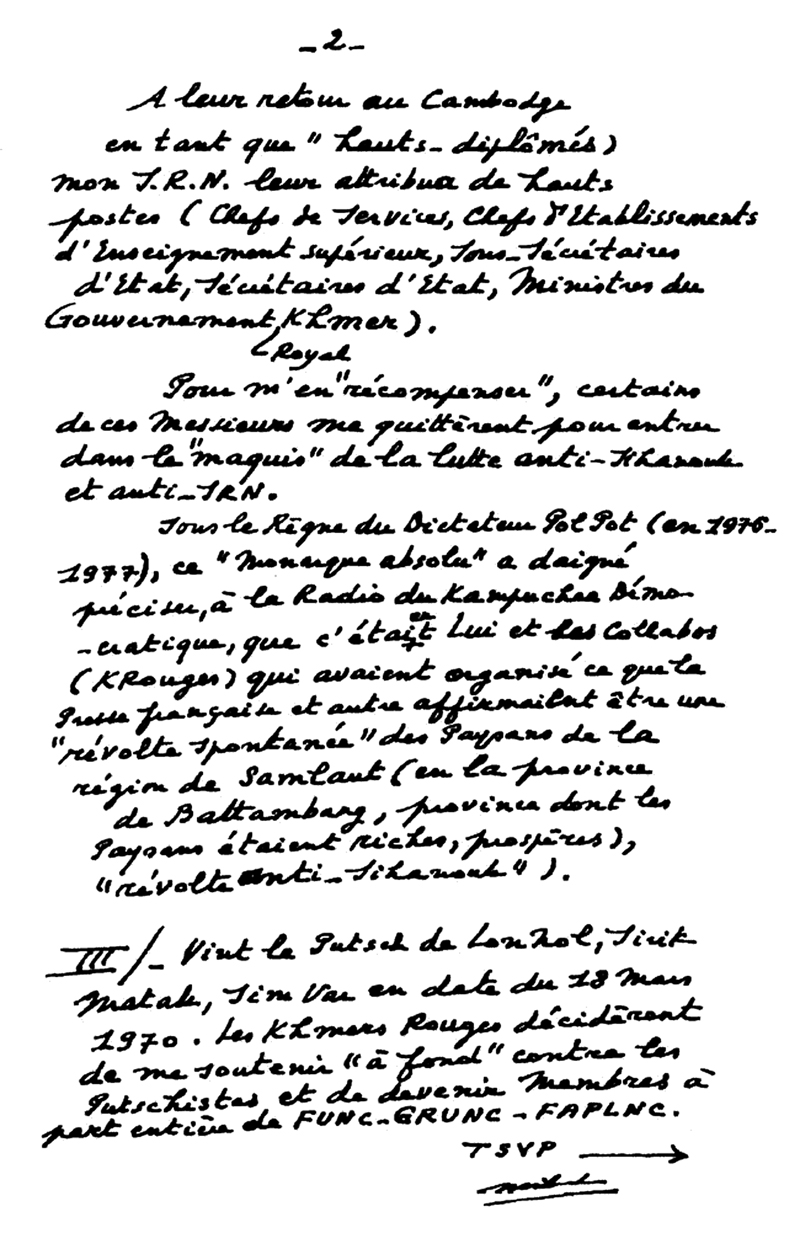 -2-
A leur retour au Cambodge
en tant que "hauts-diplômés)
mon S.R.N. leur attribua de hauts
postes (Chefs de Services, Chefs d'Etablissements
d'Enseignement supérieur, Sous-Sécrétaires
d'Etat, Sécrétaires d'Etat, Ministres du
Gouvernement Khmer).
Royal
Pour m'en "récompenser", certains
de ces Messieurs me quittèrent pour entrer
dans le "maquis" de la lutte anti-Sihanouk
et anti-SRN.
Sous le Règne du Dictateur Pol Pot (en 1976-
1977), ce "Monarque absolu" a daigné
préciser, à la Radio du Kampuchea Démo-
-cratique, que c'était Lui et les Collabos
(KRouges) qui avaient organisé ce que la
Presse française et autre affirmaient être une
"révolte spontanée" des Paysans de la
région de Samlaut (en la province
de Battambang, province dont les
Paysans étaient riches, prospères),
"révolte anti-Sihanouk").
III/- Vint le Putsch de Lon Nol, Sirik
Matak, Sim Var en date du 18 Mars
1970. Les Khmers Rouges décidèrent
de me soutenir "à fond" contre les
Putschistes et de devenir Membres à
part entière de FUNC-GRUNC-FAPLNC.
TSVP →